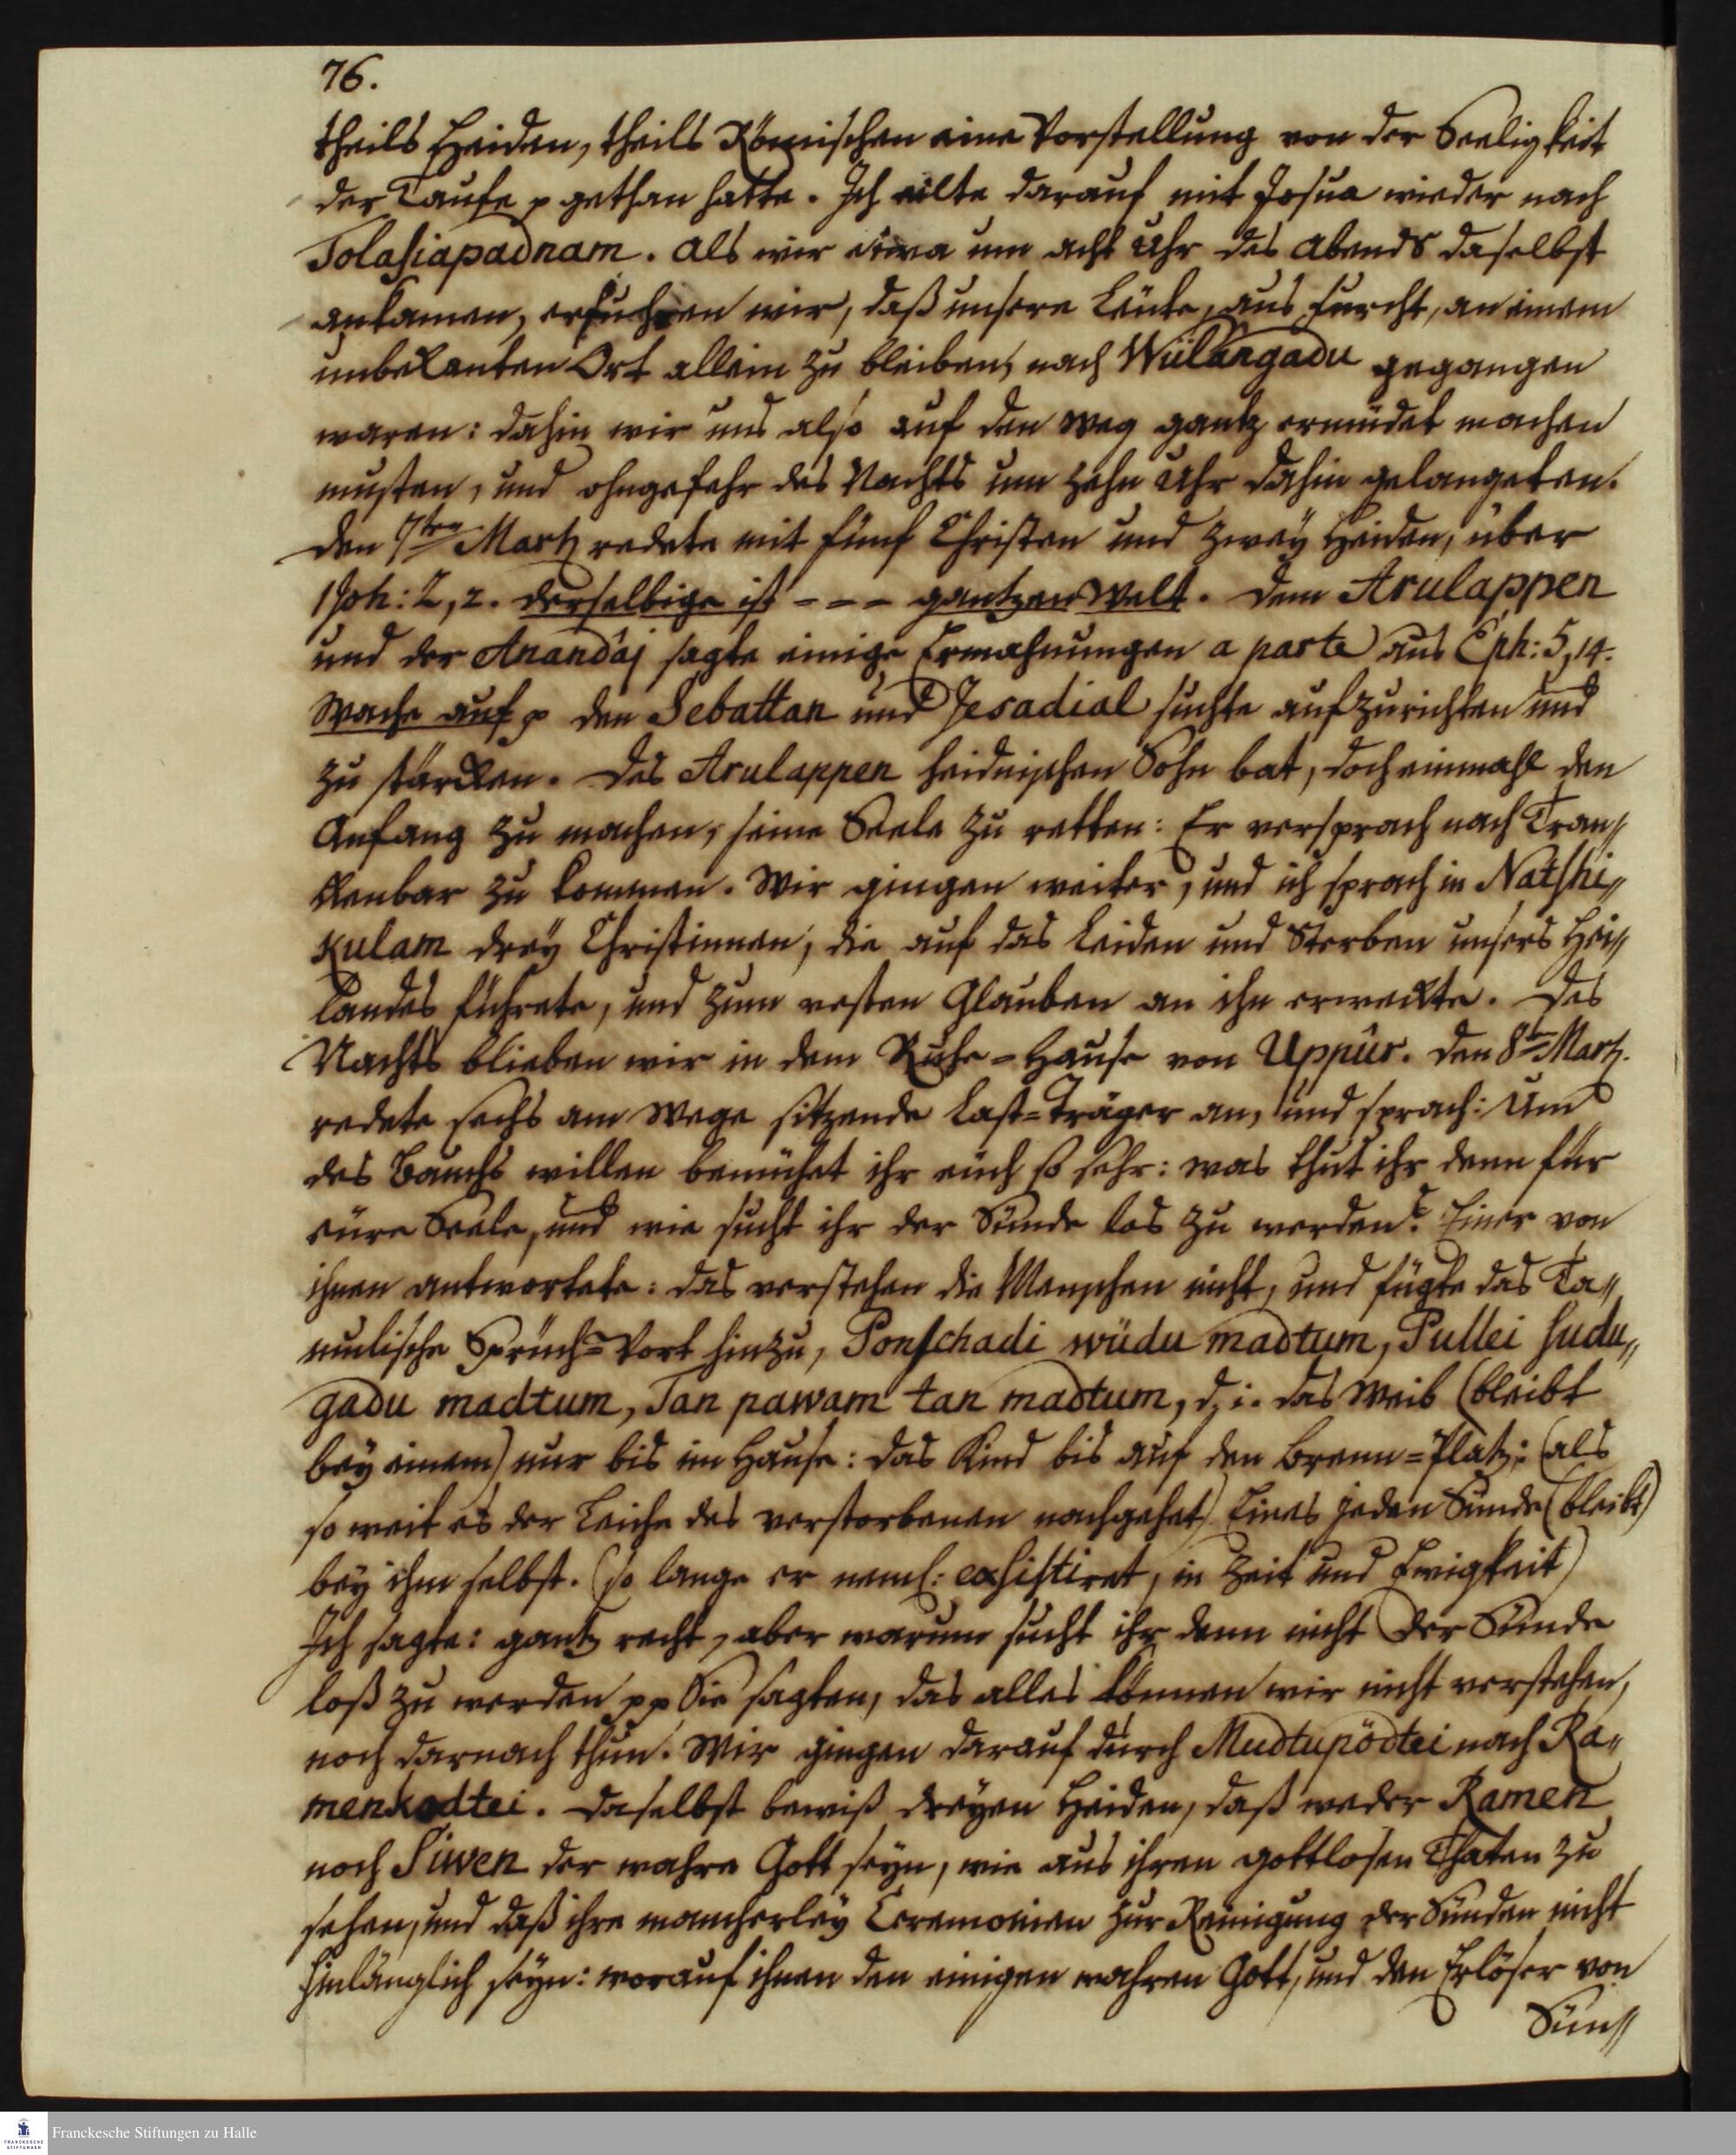 76.
theils Heiden, theils Römischen eine Vorstellung von der Seeligkeit
der Taufe p gethan hatte. Ich eilte darauf mit Josua wieder nach
Tolasiapadnam. Als wir etwa um acht Uhr des Abends daselbst
ankamen, erfuhren wir, daß unsere Leute, aus Furcht, an einem
unbekanten Ort allein zu bleiben, nach Wülangadu gegangen
waren: dahin wir uns also auf den Weg gantz ermüdet machen
musten, und ohngefehr des Nachts um zehn Uhr dahin gelangeten.
Den 7ten Martz redete mit fünf Christen und zwey Heiden, über
1 Joh: 2, 2. derselbige ist - - - gantzen Welt. Dem Arulappen
und der Anandâj sagte einige Ermahnungen a parte aus Eph: 5, 14.
Wache auf p den Sebattan und Jesadial suchte aufzurichten und
zu stärcken. Des Arulappen heidnischen Sohn bat, doch einmahl den
Anfang zu machen, seine Seele zu retten: Er versprach nach Tran〃
ckenbar zu kommen. Wir gingen weiter, und ich sprach in Natshi〃
kulam drey Christinnen, die auf das Leiden und Sterben unsers Hei〃
landes führete, und zum vesten Glauben an ihn erweckte. Des
Nachts blieben wir in dem Ruhe=Hause von Uppûr. Den 8ten Martz.
redete sechs am Wege sitzende Last=Träger an, und sprach: Um
des Bauchs willen bemühet ihr euch so sehr: was thut ihr denn für
eüre Seele, und wie sucht ihr der Sünde los zu werden? Einer von
ihnen antwortete: das verstehen die Menschen nicht, und fügte das Ta〃
mulische Sprüch=Wort hinzu, Ponschadi wüdu madtum, Pullei sudu〃
gadu madtum, Tan pawam tan madtum, d. i. das Weib (bleibt
bey einem) nur bis im Hause: das Kind bis auf den Brenn=Platz: (als
so weit es der Leiche des verstorbenen nachgehet) Eines jeden Sünde (bleibt)
bey ihm selbst. (so lange er neml: exsistiret, in Zeit und Ewigkeit)
Ich sagte: gantz recht, aber warum sucht ihr denn nicht der Sünde
loß zu werden pp Sie sagten, das alles können wir nicht verstehen,
noch darnach thun. Wir gingen darauf durch Mudtupödtei nach Ra〃
menkodtei. Daselbst bewiß dreyen Heiden, daß weder Ramen
noch Siwen der wahre Gott seyn, wie aus ihren gottlosen Thaten zu
sehen, und daß ihre mancherley Ceremonien zur Reinigung der Sünden nicht
hinlänglich seyn: worauf ihnen den einigen wahren Gott, und den Erlöser von
Sün〃
Franckesche Stiftungen zu Halle
FRANCKESCHE
STIFTUNGEN